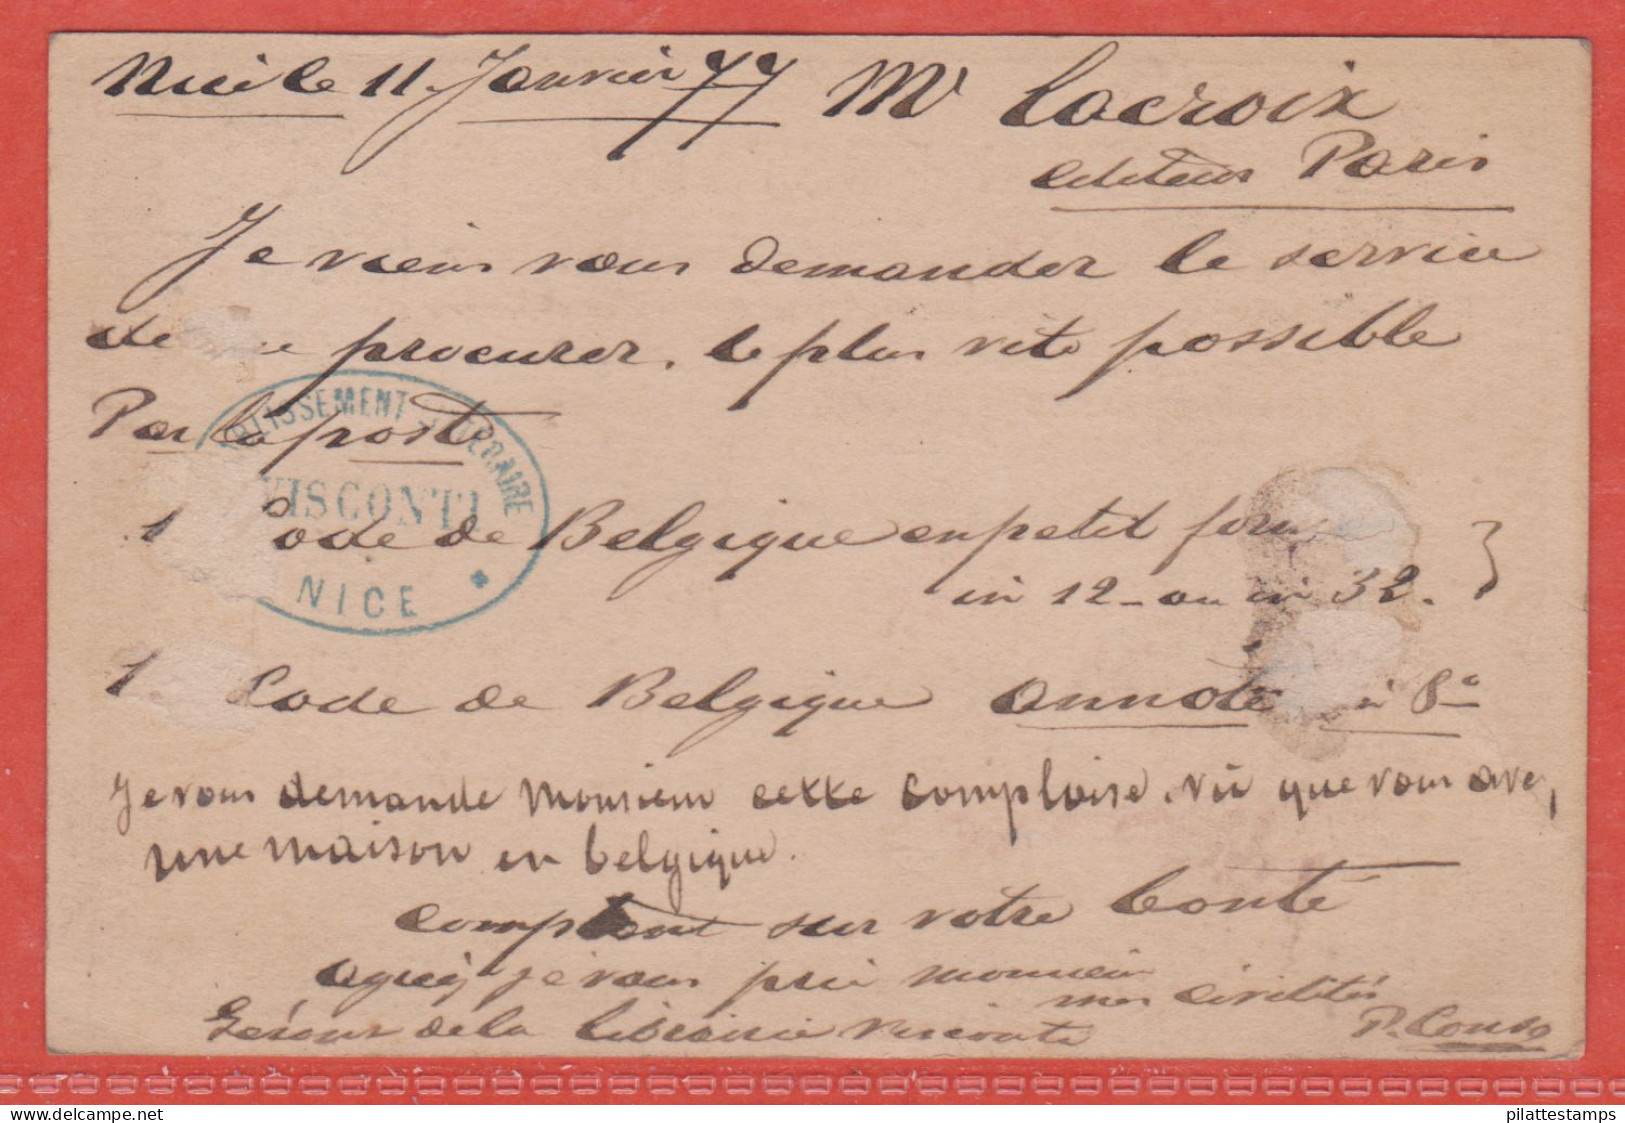 Nice le 11 Janvier 77 Mr Lacroix
editeur Paris
Je viens vous demander le service
de procurer, le plus vite possible
Par la poste
ETABLISSEMENT LITTERAIRE
VISCONTI
NICE *
1 Code de Belgique en petit form
in 12 - ou in 32. }
1 Code de Belgique annoté in 8°
Je vous demande Monsieur cette complaise. vû que vous avez,
une maison en belgique.
Comptant sur votre bonté
agréez je vous prie monsieur
mes civilités
Gérant de la librairie Visconti
pilattestamps